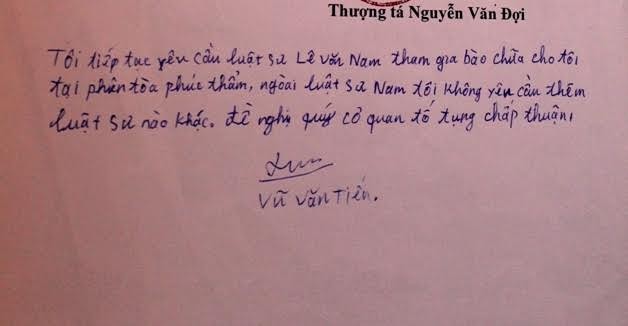 Thượng tá Nguyễn Văn Đợi
Tôi tiếp tục yêu cầu luật sư Lê Văn Nam tham gia bào chữa cho tôi
tại phiên tòa phúc thẩm, ngoài luật sư Nam tôi không yêu cầu thêm
luật sư nào khác. đề nghị quý cơ quan tố tụng chấp thuận,
Vũ Văn Tiến.